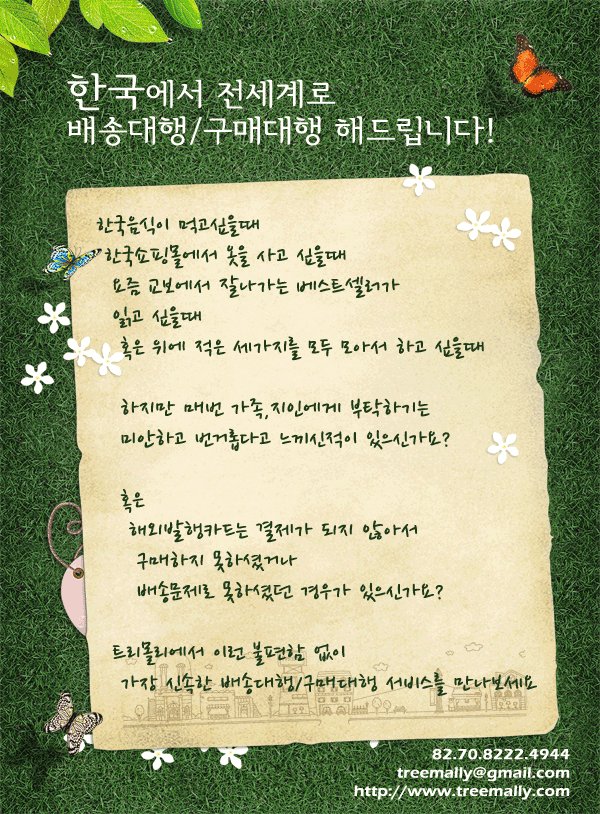 한국에서 전세계로
배송대행/구매대행 해드립니다!
한국음식이 먹고싶을때
한국쇼핑몰에서 옷을 사고 싶을때
요즘 교보에서 잘나가는 베스트셀러가
읽고 싶을때
혹은 위에 적은 세가지를 모두 모아서 하고 싶을때
하지만 매번 가족,지인에게 부탁하기는
미안하고 번거롭다고 느끼신적이 있으신가요?
혹은
해외발행카드는 결제가 되지 않아서
구매하지 못하셨거나
배송문제로 못하셨던 경우가 있으신가요?
트리몰리에서 이런 불편함 없이
가장 신속한 배송대행/구매대행 서비스를 만나보세요
82.70.8222.4944
treemally@gmail.com
http://www.treemally.com